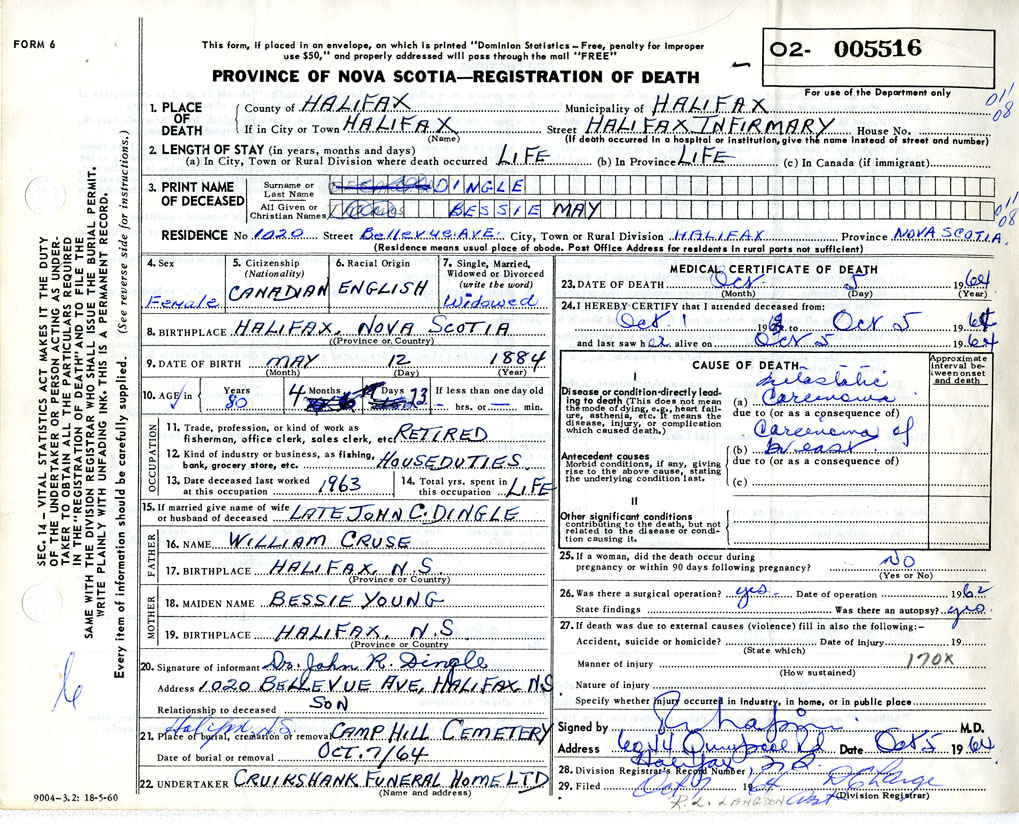 FORM 6
This form, if placed in an envelope, on which is printed "Dominion Statistics – Free, penalty for improper
use $50," and properly addressed will pass through the mail "FREE"
PROVINCE OF NOVA SCOTIA—REGISTRATION OF DEATH
02- 005516
For use of the Department only
011
08
1. PLACE OF DEATH
County of HALIFAX Municipality of HALIFAX
If in City or Town HALIFAX Street HALIFAX INFIRMARY House No.
(Name) (If death occurred in a hospital or institution, give name instead of street and number)
2. LENGTH OF STAY (in years, months and days)
(a) In City, Town or Rural Division where death occurred LIFE (b) In Province LIFE (c) In Canada (if immigrant)
3. PRINT NAME OF DECEASED
Surname or Last Name DINGLE
All Given or Christian Names BESSIE MAY
011
08
RESIDENCE No 1020 Street Bellevue AVE. City, Town or Rural Division HALIFAX Province NOVA SCOTIA.
(Residence means usual place of abode. Post Office Address for residents in rural parts not sufficient)
4. Sex Female
5. Citizenship (Nationality) CANADIAN
6. Racial Origin ENGLISH
7. Single, Married, Widowed or Divorced (write the word) Widowed
8. BIRTHPLACE HALIFAX, NOVA SCOTIA
(Province or Country)
9. DATE OF BIRTH MAY 12 1884
(Month) (Day) (Year)
10. AGE in Years 80 4 Months Days 23 If less than one day old
– hrs. or – min.
OCCUPATION
11. Trade, profession, or kind of work as
fisherman, office clerk, sales clerk, etc. RETIRED
12. Kind of industry or business, as fishing,
bank, grocery store, etc. HOUSEDUTIES
13. Date deceased last worked at this occupation 1963
14. Total yrs. spent in this occupation LIFE
15. If married give name of wife
or husband of deceased LATE JOHN C. DINGLE
FATHER
16. NAME WILLIAM CRUSE
17. BIRTHPLACE HALIFAX, N.S.
(Province or Country)
MOTHER
18. MAIDEN NAME BESSIE YOUNG
19. BIRTHPLACE HALIFAX, N.S
(Province or Country
20. Signature of informant Dr. John R. Dingle
Address 1020 BELLEVUE AVE, HALIFAX N.S
Relationship to deceased SON
Halifax N.S.
21. Place of burial, cremation or removal CAMP HILL CEMETERY
Date of burial or removal OCT. 7/64
22. UNDERTAKER CRUIKSHANK FUNERAL HOME LTD
(Name and address)
MEDICAL CERTIFICATE OF DEATH
23. DATE OF DEATH Oct. 5 1964
(Month) (Day) (Year)
24. I HEREBY CERTIFY that I attended deceased from:
Oct. 1 19 to Oct 5 1964
and last saw her alive on Oct 5 1964
CAUSE OF DEATH
Approximate interval between onset and death
I
Disease or condition directly leading to death (This does not mean the mode of dying, e.g., heart failure, asthenia, etc. It means the disease, injury, or complication which caused death.)
metastatic
(a) Carcinoma
due to (or as a consequence of)
Carcinoma of
(b) breast
due to (or as a consequence of)
(c)
Antecedent causes
Morbid conditions, if any, giving rise to the above cause, stating the underlying condition last.
II
Other significant conditions
contributing to the death, but not related to the disease or condition causing it.
25. If a woman, did the death occur during
pregnancy or within 90 days following pregnancy? NO
(Yes or No)
26. Was there a surgical operation? yes Date of operation 1962
State findings Was there an autopsy? yes
27. If death was due to external causes (violence) fill in also the following:–
Accident, suicide or homicide? Date of injury 19
(State which)
Manner of injury 170X
(How sustained)
Nature of injury
Specify whether injury occurred in industry, in home, or in public place
Signed by M.D.
Address Quinpool Rd Date Oct 5 1964
Halifax N.S.
28. Division Registrar's Record Number
29. Filed Oct 7 1964
(Division Registrar)
R. L. LANGDON
SEC. 14 – VITAL STATISTICS ACT MAKES IT THE DUTY
OF THE UNDERTAKER OR PERSON ACTING AS UNDER-
TAKER TO OBTAIN ALL THE PARTICULARS REQUIRED
IN THE "REGISTRATION OF DEATH" AND TO FILE THE
SAME WITH THE DIVISION REGISTRAR WHO SHALL ISSUE THE BURIAL PERMIT.
WRITE PLAINLY WITH UNFADING INK. THIS IS A PERMANENT RECORD.
Every item of information should be carefully supplied. (See reverse side for instructions.)
9004-3.2: 18-5-60